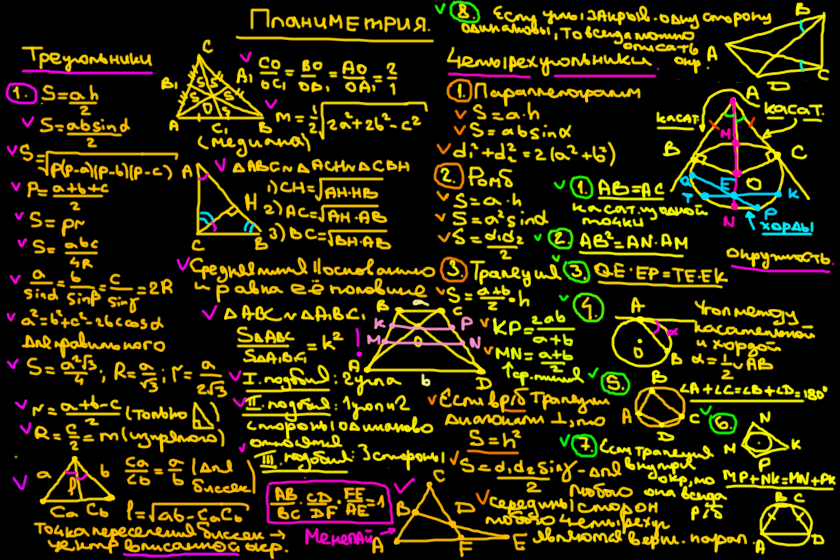 Планиметрия.
Треугольники
1. S=ah/2
S=absinα/2
S=√p(p-a)(p-b)(p-c)
P=a+b+c/2
S=pr
S=abc/4R
a/sinα=b/sinβ=c/sinγ=2R
a²=b²+c²-2bccosα
для правильного
S=a²√3/4; R=a/√3; r=a/2√3
r=a+b-c/2 (только
R=c/2=m (из прямого)
a b l
Ca Cb
Ca/Cb=a/b (для биссек)
l=√ab-CaCb
Точка пересечения биссек→
центр вписанной окр.
C
B₁ A₁
S S S S S S
O
A C₁ B
CO/OC₁=BO/OB₁=AO/OA₁=2/1
M=1/2√2a²+2b²-c²
(медиана)
A
H
C B
△ABC∾△ACH∾△CBH
1) CH=√AH·HB
2) AC=√AH·AB
3) BC=√BH·AB
Средняя линия ॥ основанию
и равна её половине
△ABC∾△A₁B₁C₁
S△ABC/S△A₁B₁C₁=k²
I подобия: 2 угла
II подобия: 1 угол и 2
стороны одинаково
относятся
III подобия: 3 стороны
AB/BC·CD/DF·FE/AE=1
Менелай
C
B D
A F E
8. Если углы закрыв. одну сторону
одинаковы, то всегда можно
описать
окр.
B
A
D C
Четырехугольники.
1. Параллелограмм
S=a·h
S=absinα
d₁²+d₂²=2(a²+b²)
2. Ромб
S=a·h
S=a²sinα
S=d₁d₂/2
3. Трапеция
S=a+b/2·h
B a C
K O P
M N
A b D
KP=2ab/a+b
MN=a+b/2
ср. линия
Если в р/б Трапеции
диагонали ⊥, то
S=h²
S=d₁d₂sinγ/2-для
любого
середины сторон
любого четырехуг
являются верш. парал.
A
касат. касат.
M
B C
O
Q E K
T
N P
хорды
1. AB=AC
касат. из одной
точки
2. AB²=AN·AM
Окружность.
3. QE·EP=TE·EK
4.
A
α
O
B
Угол между
касательной
и хордой
α=1/2◡AB
5.
B
A C
D
∠A+∠C=∠B+∠D=180°
6.
N
M K
P
MP+NK=MN+PK
7. Если трапеция
внутри
окр, то
она всегда
р/б
B C
A D